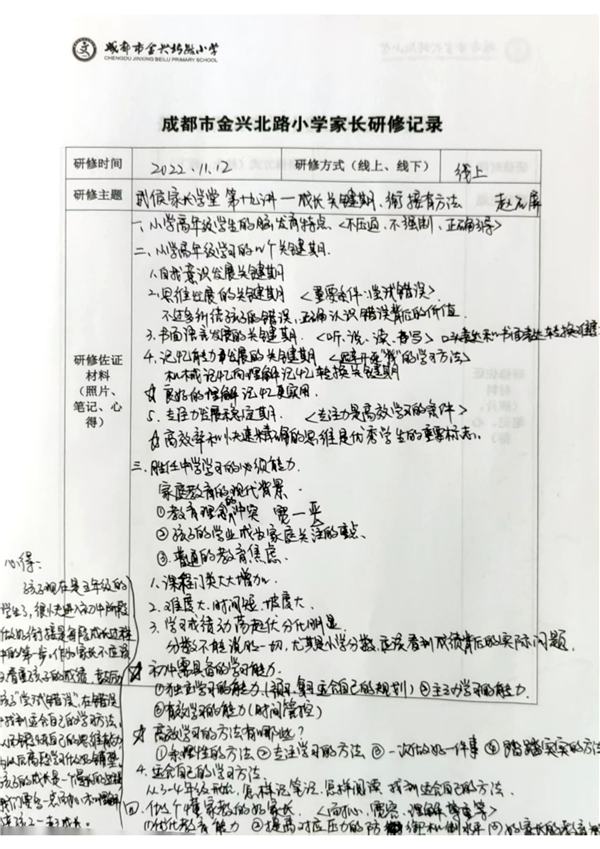 成都市金兴北路小学
CHENGDU JINXING BEILU PRIMARY SCHOOL
成都市金兴北路小学家长研修记录
研修时间 2022.11.12 研修方式（线上、线下） 线上
研修主题 武侯家长学堂 第十九讲—成长关键期,衔接有方法
一.小学高年级学生的脑发育特点.<不压迫.不强制.正确引导>
二.小学高年级学习的几个关键期.
1.自我意识发展关键期
2.思维发展的关键期 <重要条件:尝试错误>
不过多纠结孩子的错误,正确认识错误背后的价值.
3.书面语言发展的关键期.<听、说、读、书写>
4.记忆能力发展的关键期 "我"的学习方法>
机械记忆向理解记忆转换关键期
☆良好的理解记忆更实用.
5.专注力发展稳定期. <专注力是高效学习的条件>
☆高效率和快速精确的思维是优秀学生的重要标志。
研修佐证
材料
（照片、
笔记、心
得）
三.胜任中学学习的必须能力.
家庭教育的现代背景.
①教育理念的冲突 宽—严
②孩子的学业成为家庭关注的重点、
③普遍的教育焦虑.
1.课程门类大大增加.
2.难度大.时间短.坡度大.
3.学习成绩动荡起伏分化明显.
分数不能说明一切,尤其是小学分数,应该看到成绩背后的实际问题.
☆初中需具备的学习能力.
①独立学习的能力 适合自己的规划)②主动学习的能力.
③有效学习的能力(时间管控)
☆高效学习的方法有哪些?
①条理性的方法②专注学习的方法③一次做好一件事④踏踏实实的方法
4.适合自己的学习方法.
从3-4年级开始,怎样记笔记.怎样阅读.找到适合自己的方法.
四.做个懂家教的好家长. 宽容.理解.尊重等>
①优化教育能力②提高对应压力的防御机制水平
心得:
孩子现在是五年级的
学生了,很快进入初中阶段
做好衔接是每段成长过程
中的第一步,作为家长不应该
只看重孩子的成绩.
孩子"尝试错误",在错误
中找到适合自己的学习方法,
孩子的成长是一个漫长的过程
与孩子一起成长.